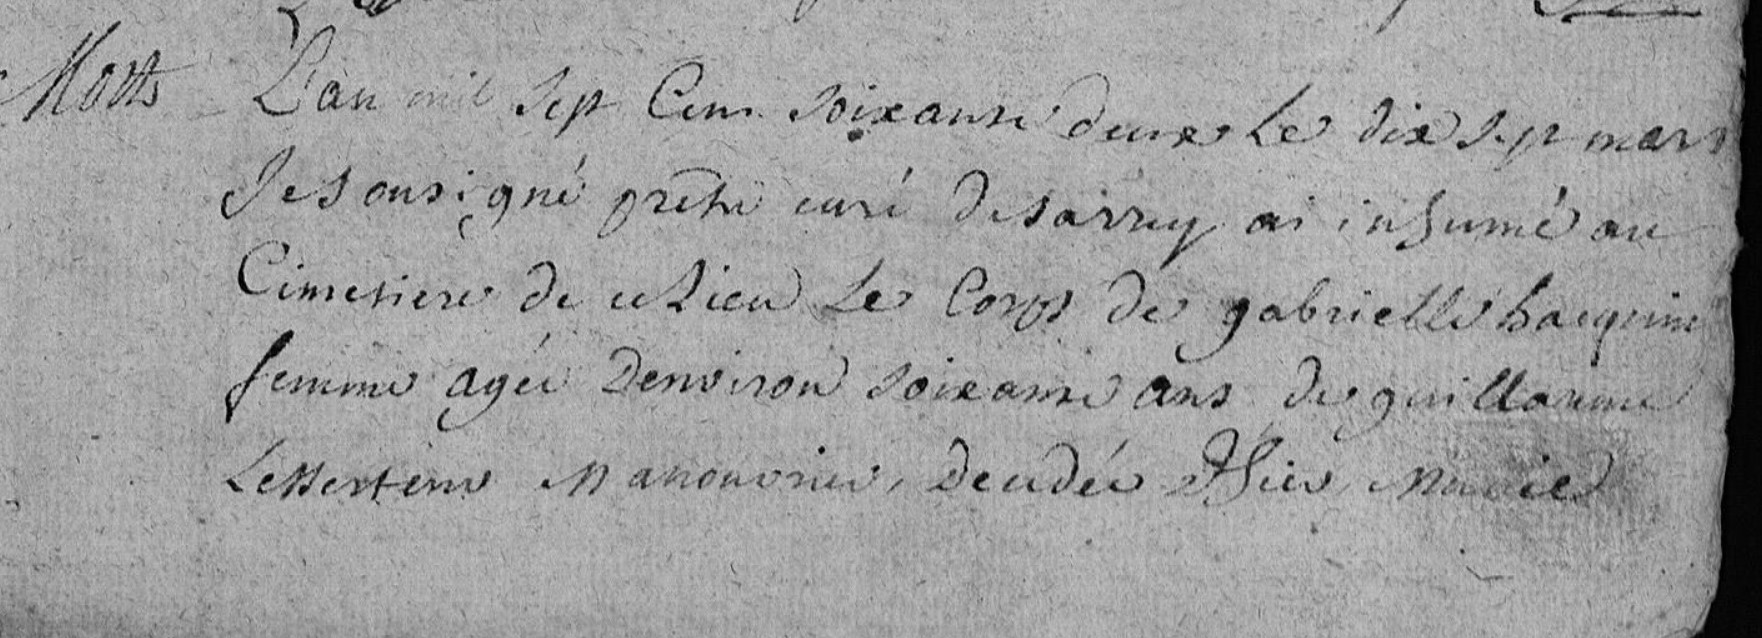 Morts L'an mil sept Cent soixante deux Le dix sept mars
Je sousigné prêtre curé de sarrey ai inhumé au
Cimetiere de ce Lieu Le Corps de gabrielle hacquin
femme agée Denviron soixante ans de guillaume
manouvrier, Decedée Hier munie